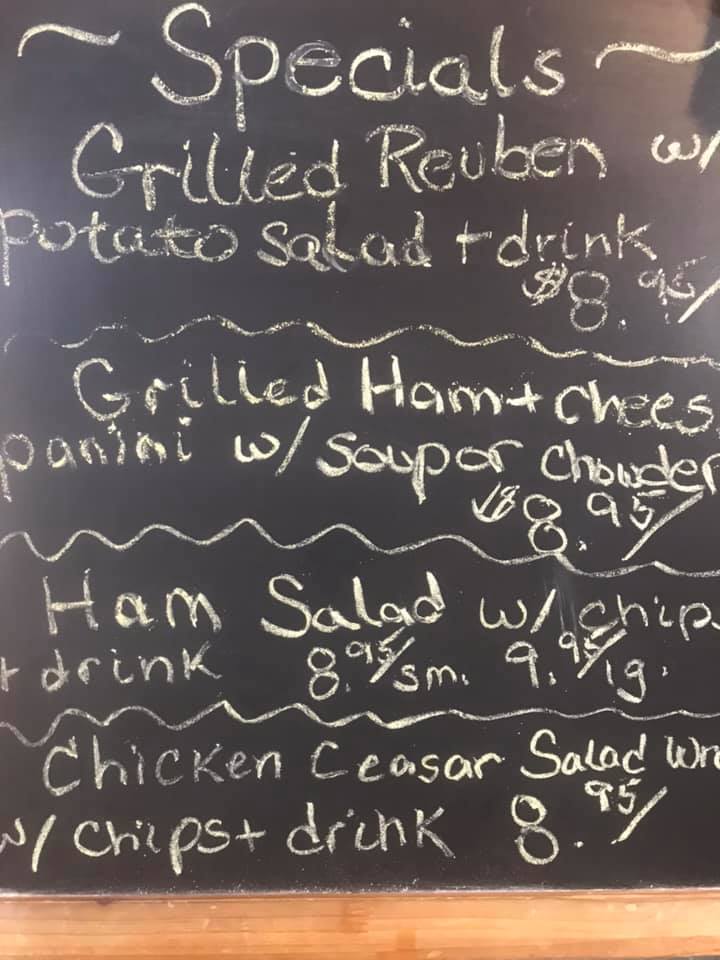 ~ Specials ~
Grilled Reuben w/
potato salad + drink
$8.95/
Grilled Ham + chees
panini w/ soup or chowder
$8.95/
Ham Salad w/ chips
+ drink 8.95/sm. 9.95/lg.
Chicken Ceasar Salad Wra
w/ chips + drink 8.95/